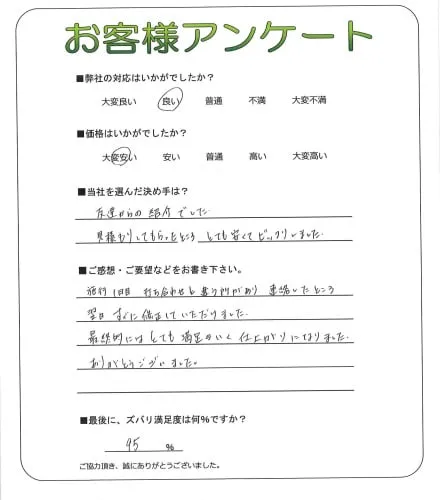 お客様アンケート
■弊社の対応はいかがでしたか？
大変良い 良い 普通 不満 大変不満
■価格はいかがでしたか？
大変安い 安い 普通 高い 大変高い
■当社を選んだ決め手は？
友達からの紹介でした。
見積もりしてもらったところ とても安くてビックリしました。
■ご感想・ご要望などをお書き下さい。
施行1日目 打ち合わせと違う所があり 連絡したところ
翌日 すぐに修正していただけました。
最終的にはとても満足のいく仕上がりになりました。
ありがとうございました。
■最後に、ズバリ満足度は何%ですか？
95 %
ご協力頂き、誠にありがとうございました。